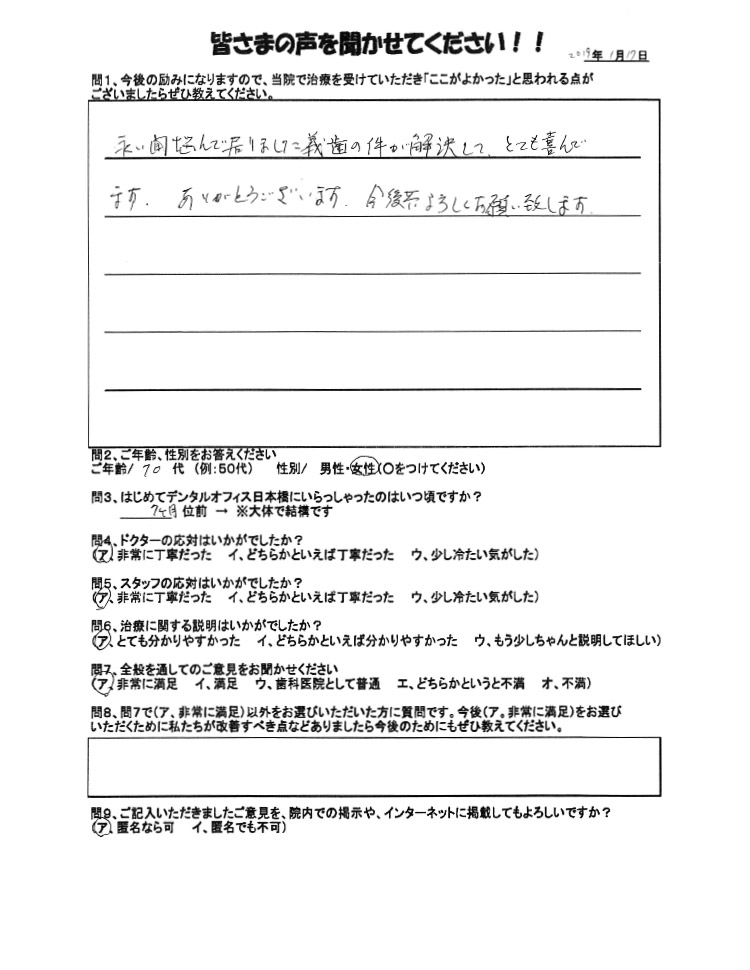 皆さまの声を聞かせてください！！
2019年 1月17日
問1、今後の励みになりますので、当院で治療を受けていただき「ここがよかった」と思われる点が
ございましたらぜひ教えてください。
永い間悩んで居りました義歯の件が解決して、とても喜んで
ます。 ありがとうございます。今後共よろしくお願い致します。
問2、ご年齢、性別をお答えください
ご年齢/ 70 代 (例:50代) 性別/ 男性・女性(〇をつけてください)
問3、はじめてデンタルオフィス日本橋にいらっしゃったのはいつ頃ですか？
7ヶ月 位前 → ※大体で結構です
問4、ドクターの応対はいかがでしたか？
(ア、非常に丁寧だった イ、どちらかといえば丁寧だった ウ、少し冷たい気がした)
問5、スタッフの応対はいかがでしたか？
(ア、非常に丁寧だった イ、どちらかといえば丁寧だった ウ、少し冷たい気がした)
問6、治療に関する説明はいかがでしたか？
(ア、とても分かりやすかった イ、どちらかといえば分かりやすかった ウ、もう少しちゃんと説明してほしい)
問7、全般を通してのご意見をお聞かせください
(ア、非常に満足 イ、満足 ウ、歯科医院として普通 エ、どちらかというと不満 オ、不満)
問8、問7で(ア、非常に満足)以外をお選びいただいた方に質問です。今後(ア。非常に満足)をお選び
いただくために私たちが改善すべき点などありましたら今後のためにもぜひ教えてください。
問9、ご記入いただきましたご意見を、院内での掲示や、インターネットに掲載してもよろしいですか？
(ア、匿名なら可 イ、匿名でも不可)